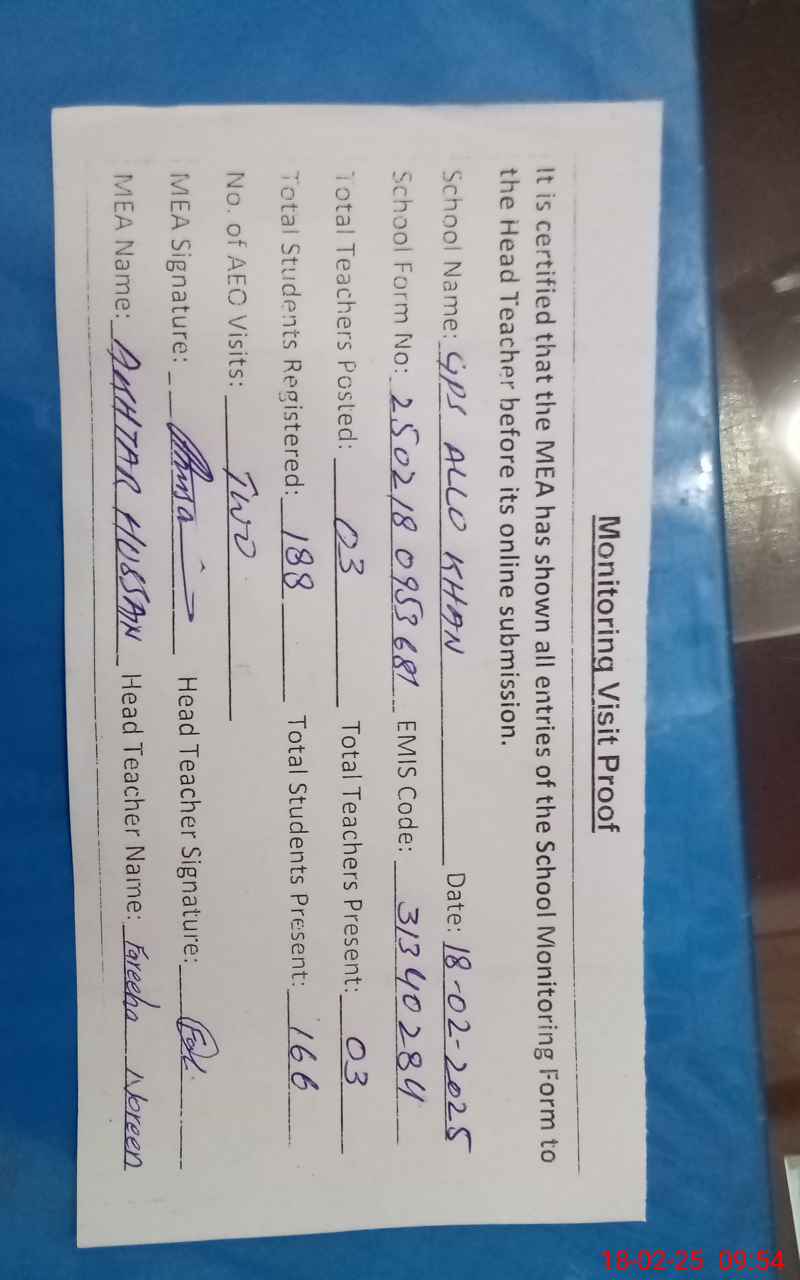 Monitoring Visit Proof
It is certified that the MEA has shown all entries of the School Monitoring Form to
the Head Teacher before its online submission.
School Name: GPS ALLO KHAN Date: 18-02-2025
School Form No: 250218 0953 681 EMIS Code: 31340284
Total Teachers Posted: 03 Total Teachers Present: 03
Total Students Registered: 188 Total Students Present: 166
No. of AEO Visits: TWO
MEA Signature: Head Teacher Signature:
MEA Name: AKHTAR HUSSAN Head Teacher Name: Fareeha Noreen
18-02-25 09:54